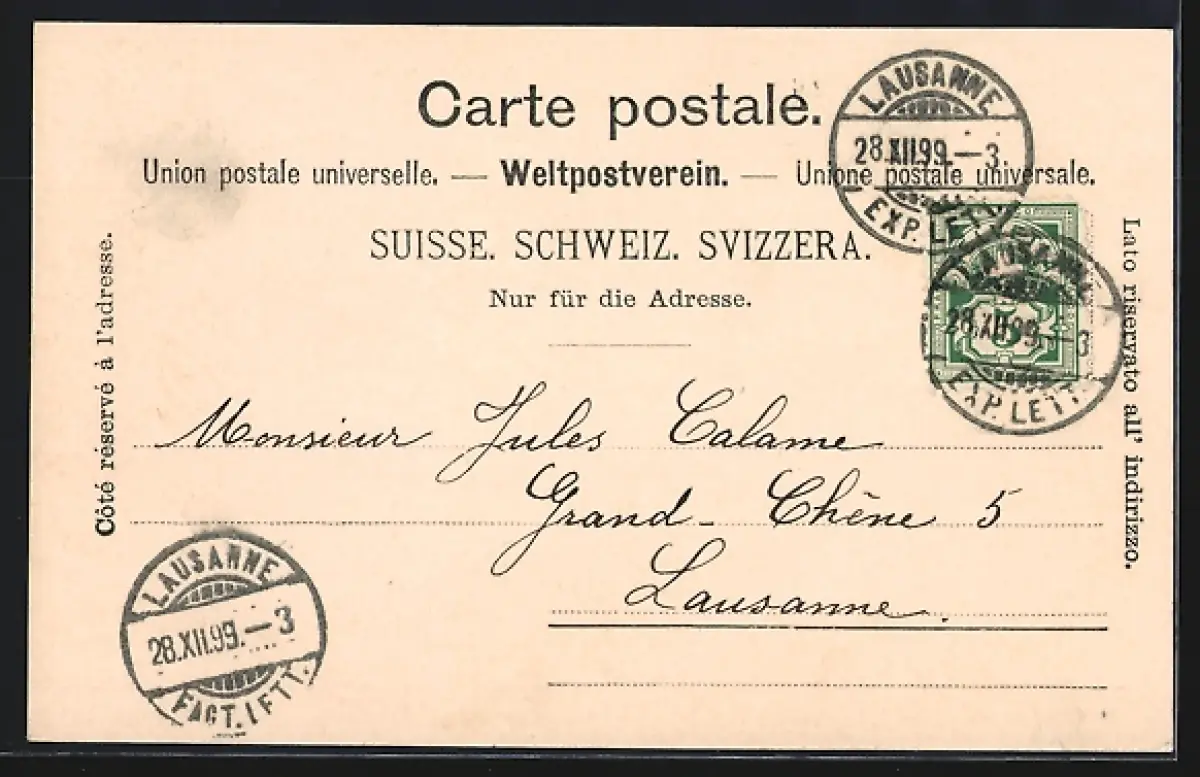 Carte postale.
Union postale universelle. — Weltpostverein. — Unione postale universale.
SUISSE. SCHWEIZ. SVIZZERA.
Nur für die Adresse.
Côté réservé à l'adresse.
Lato riservato all' indirizzo.
LAUSANNE
28.XII.99.—3
EXP. LETT.
LAUSANNE
28.XII.99.—3
EXP. LETT.
5
Monsieur Jules Calame
Grand-Chêne 5
Lausanne.
LAUSANNE
28.XII.99.—3
FACT. LETT.